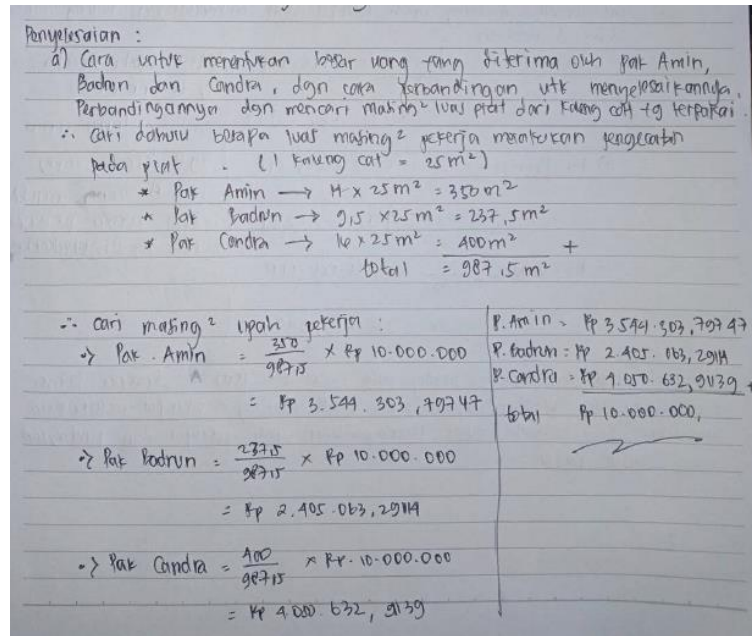 Penyelesaian :
a) Cara untuk menentukan besar uang yang diterima oleh Pak Amin,
Badrun dan Candra, dgn cara Perbandingan utk menyelesaikannya.
Perbandingannya dgn mencari masing² luas plat dari kaleng cat yg terpakai.
∴ Cari dahulu berapa luas masing² pekerja melakukan pengecatan
pada plat . (1 kaleng cat = 25m²)
* Pak Amin → 14 x 25m² = 350m²
* Pak Badrun → 9,5 x25m² = 237,5m²
* Pak Candra → 16 x 25m² = 400m² +
total = 987,5 m²
∴ Cari masing² upah pekerja :
•> Pak . Amin = 350/987,5 x Rp 10.000.000
= Rp 3.544.303,79747
•> Pak Badrun = 237,5/987,5 x Rp 10.000.000
= Rp 2.405.063,29114
•> Pak Candra = 400/987,5 x Rp. 10.000.000
= Rp 4.050.632,9139
P. Amin = Rp 3.544.303,79747
P. Badrun = Rp 2.405.063,29114
P. Candra = Rp 4.050.632,9139 +
total Rp 10.000.000,